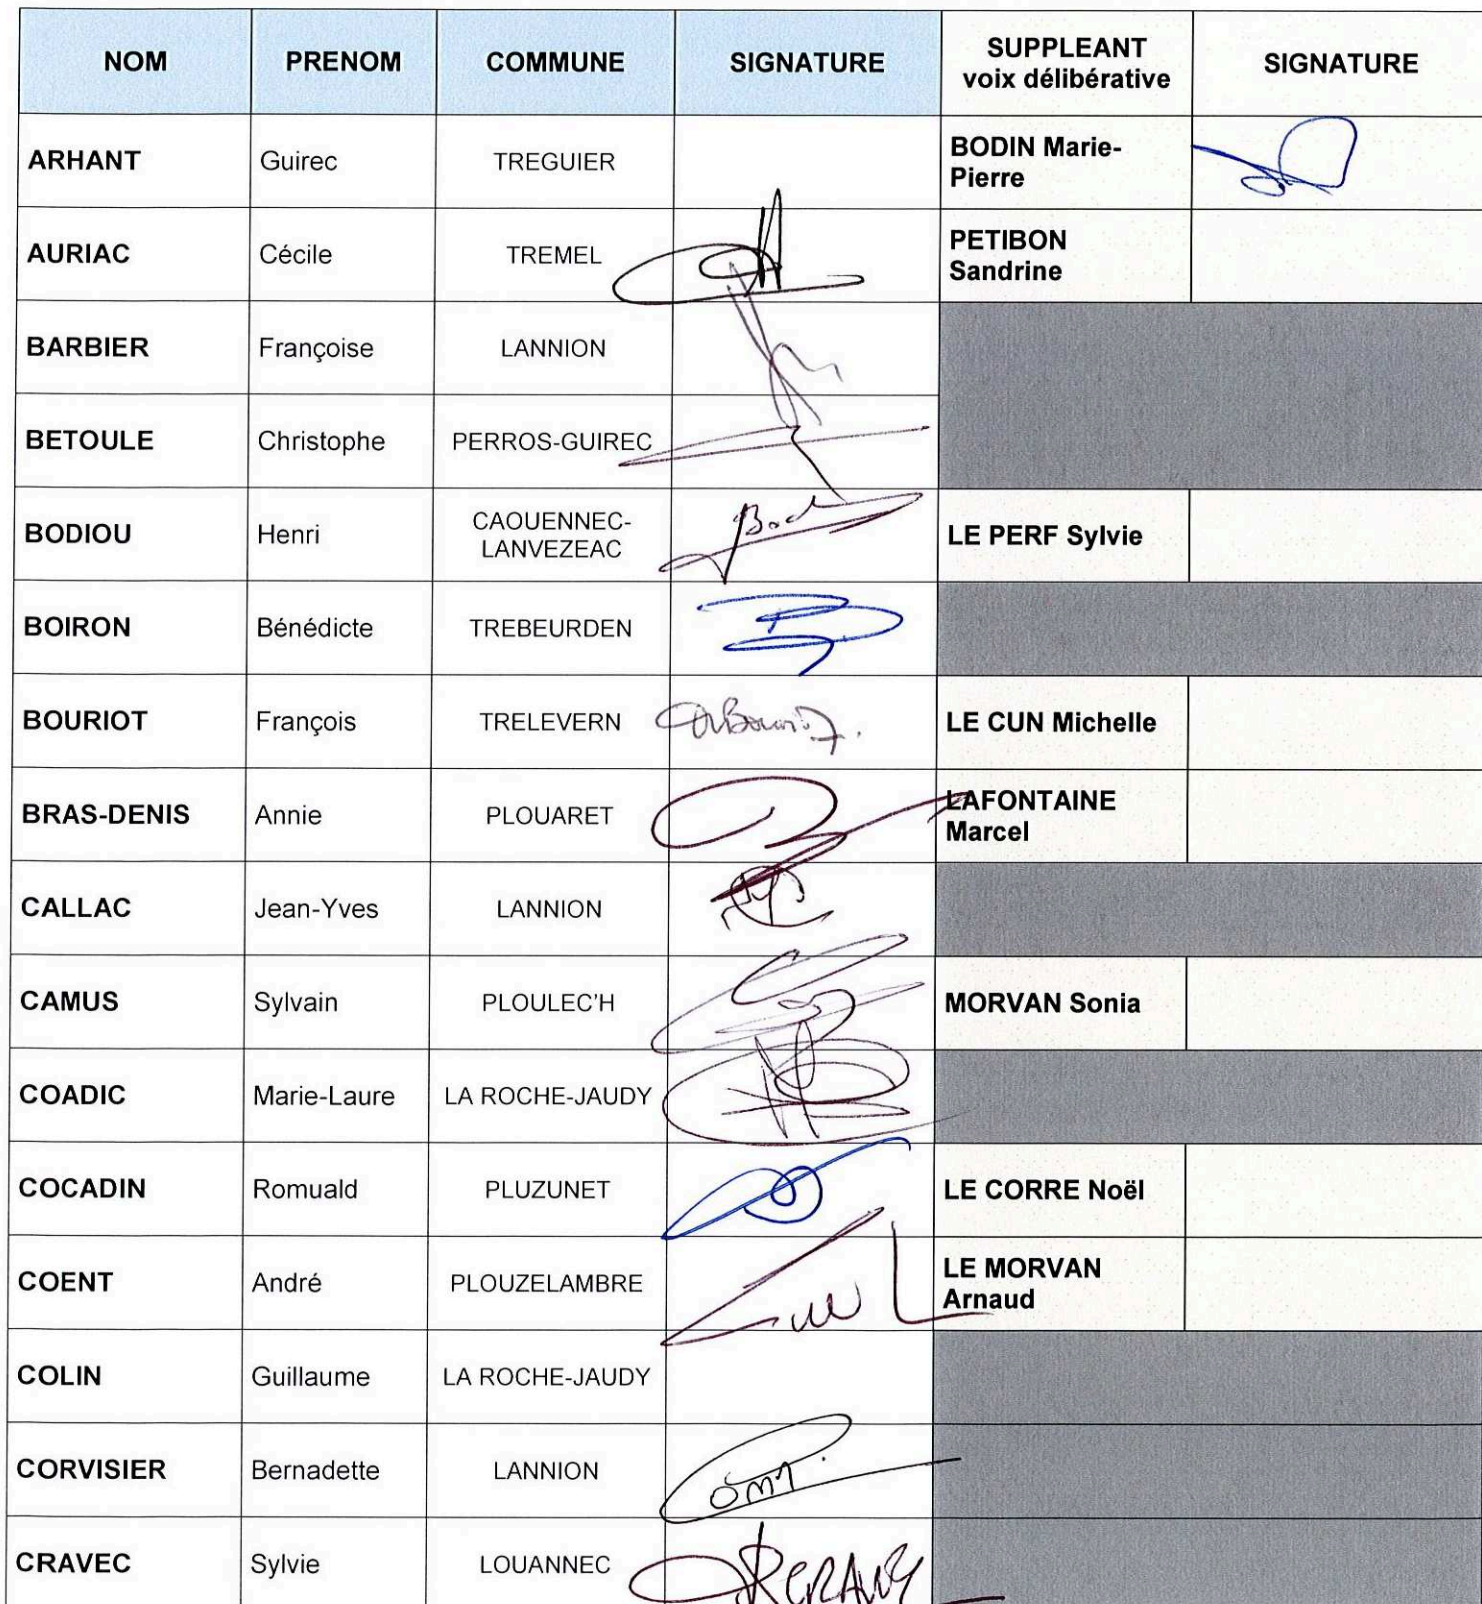 NOM PRENOM COMMUNE SIGNATURE SUPPLEANT voix délibérative SIGNATURE
ARHANT Guirec TREGUIER BODIN Marie-Pierre
AURIAC Cécile TREMEL PETIBON Sandrine
BARBIER Françoise LANNION
BETOULE Christophe PERROS-GUIREC
BODIOU Henri CAOUENNEC-LANVEZEAC LE PERF Sylvie
BOIRON Bénédicte TREBEURDEN
BOURIOT François TRELEVERN LE CUN Michelle
BRAS-DENIS Annie PLOUARET LAFONTAINE Marcel
CALLAC Jean-Yves LANNION
CAMUS Sylvain PLOULEC'H MORVAN Sonia
COADIC Marie-Laure LA ROCHE-JAUDY
COCADIN Romuald PLUZUNET LE CORRE Noël
COENT André PLOUZELAMBRE LE MORVAN Arnaud
COLIN Guillaume LA ROCHE-JAUDY
CORVISIER Bernadette LANNION
CRAVEC Sylvie LOUANNEC